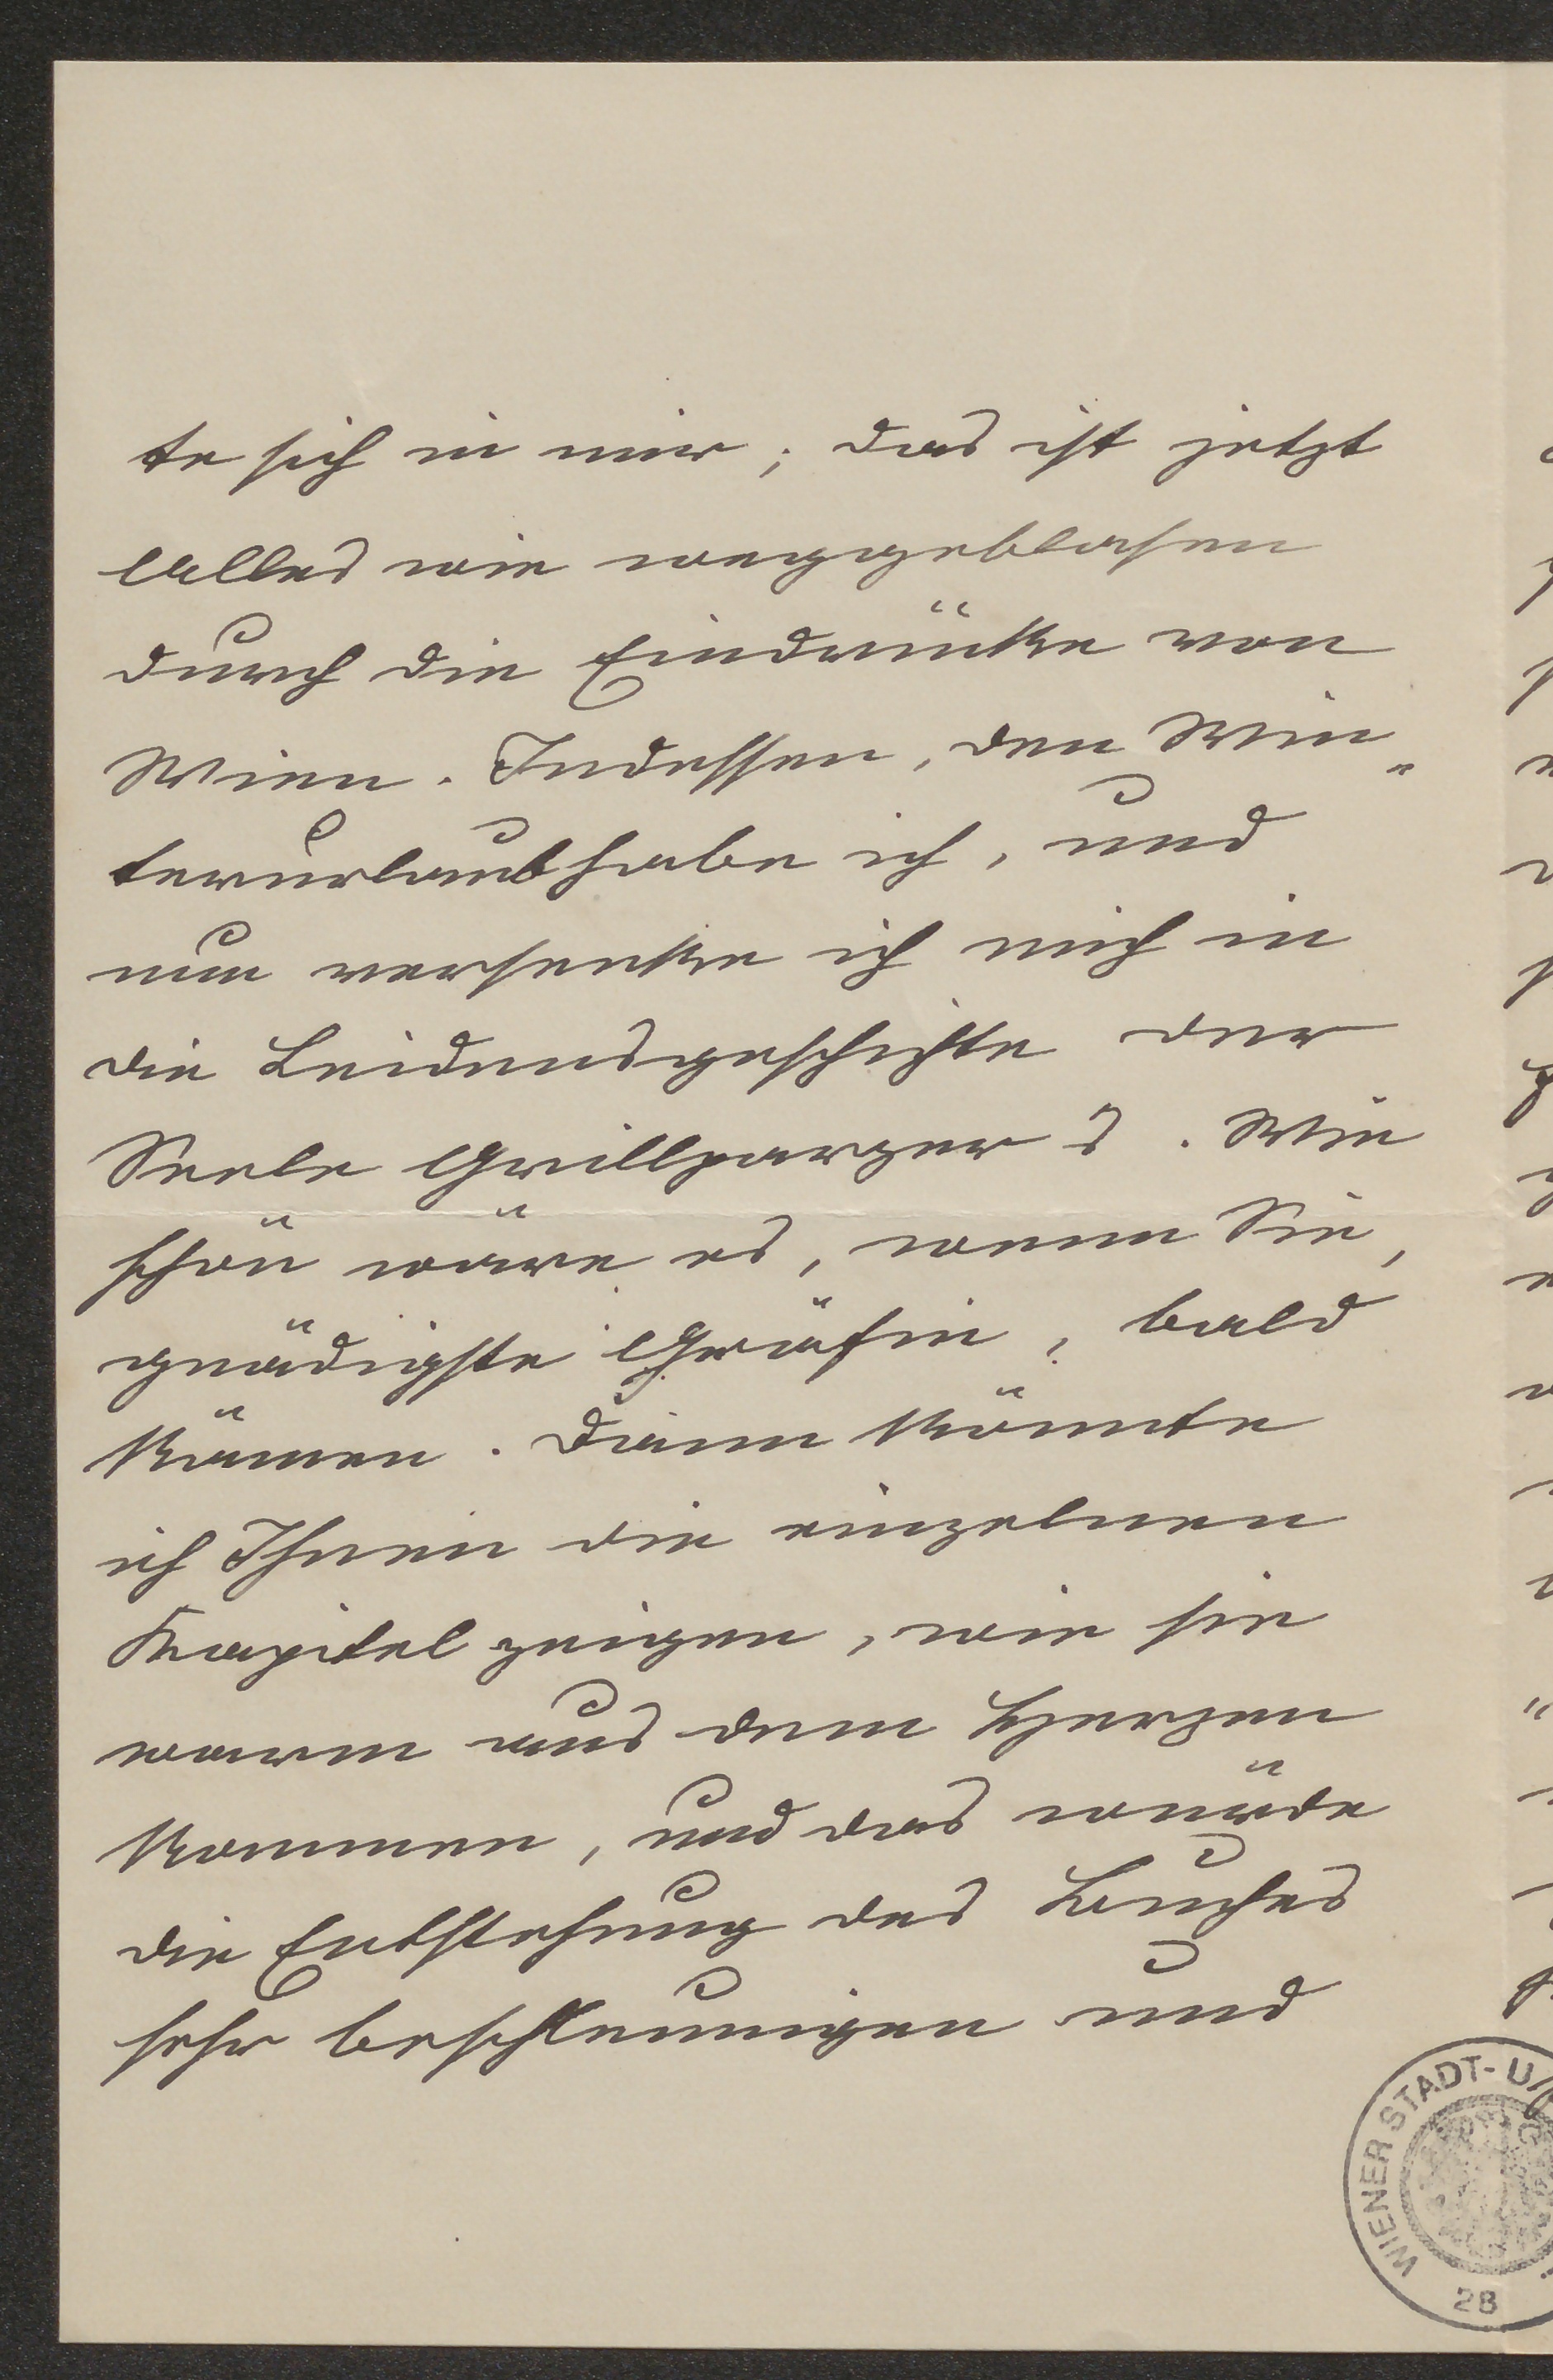 te sich in mir; das ist jetzt
Alles wie weggeblasen
durch die Eindrücke von
Wien. Indessen, den Win-
terurlaub habe ich, und
nun versenke ich mich in
die Leidensgeschichte der
Seele Grillparzers. Wie
schön wäre es, wenn Sie,
gnädigste Gräfin, bald
kämen. Dann könnte
ich Ihnen die einzelnen
Kapitel zeigen, wie sie
warm aus dem Herzen
kommen, und das würde
die Entstehung des Buches
sehr beschleunigen und
WIENER STADT- U
28